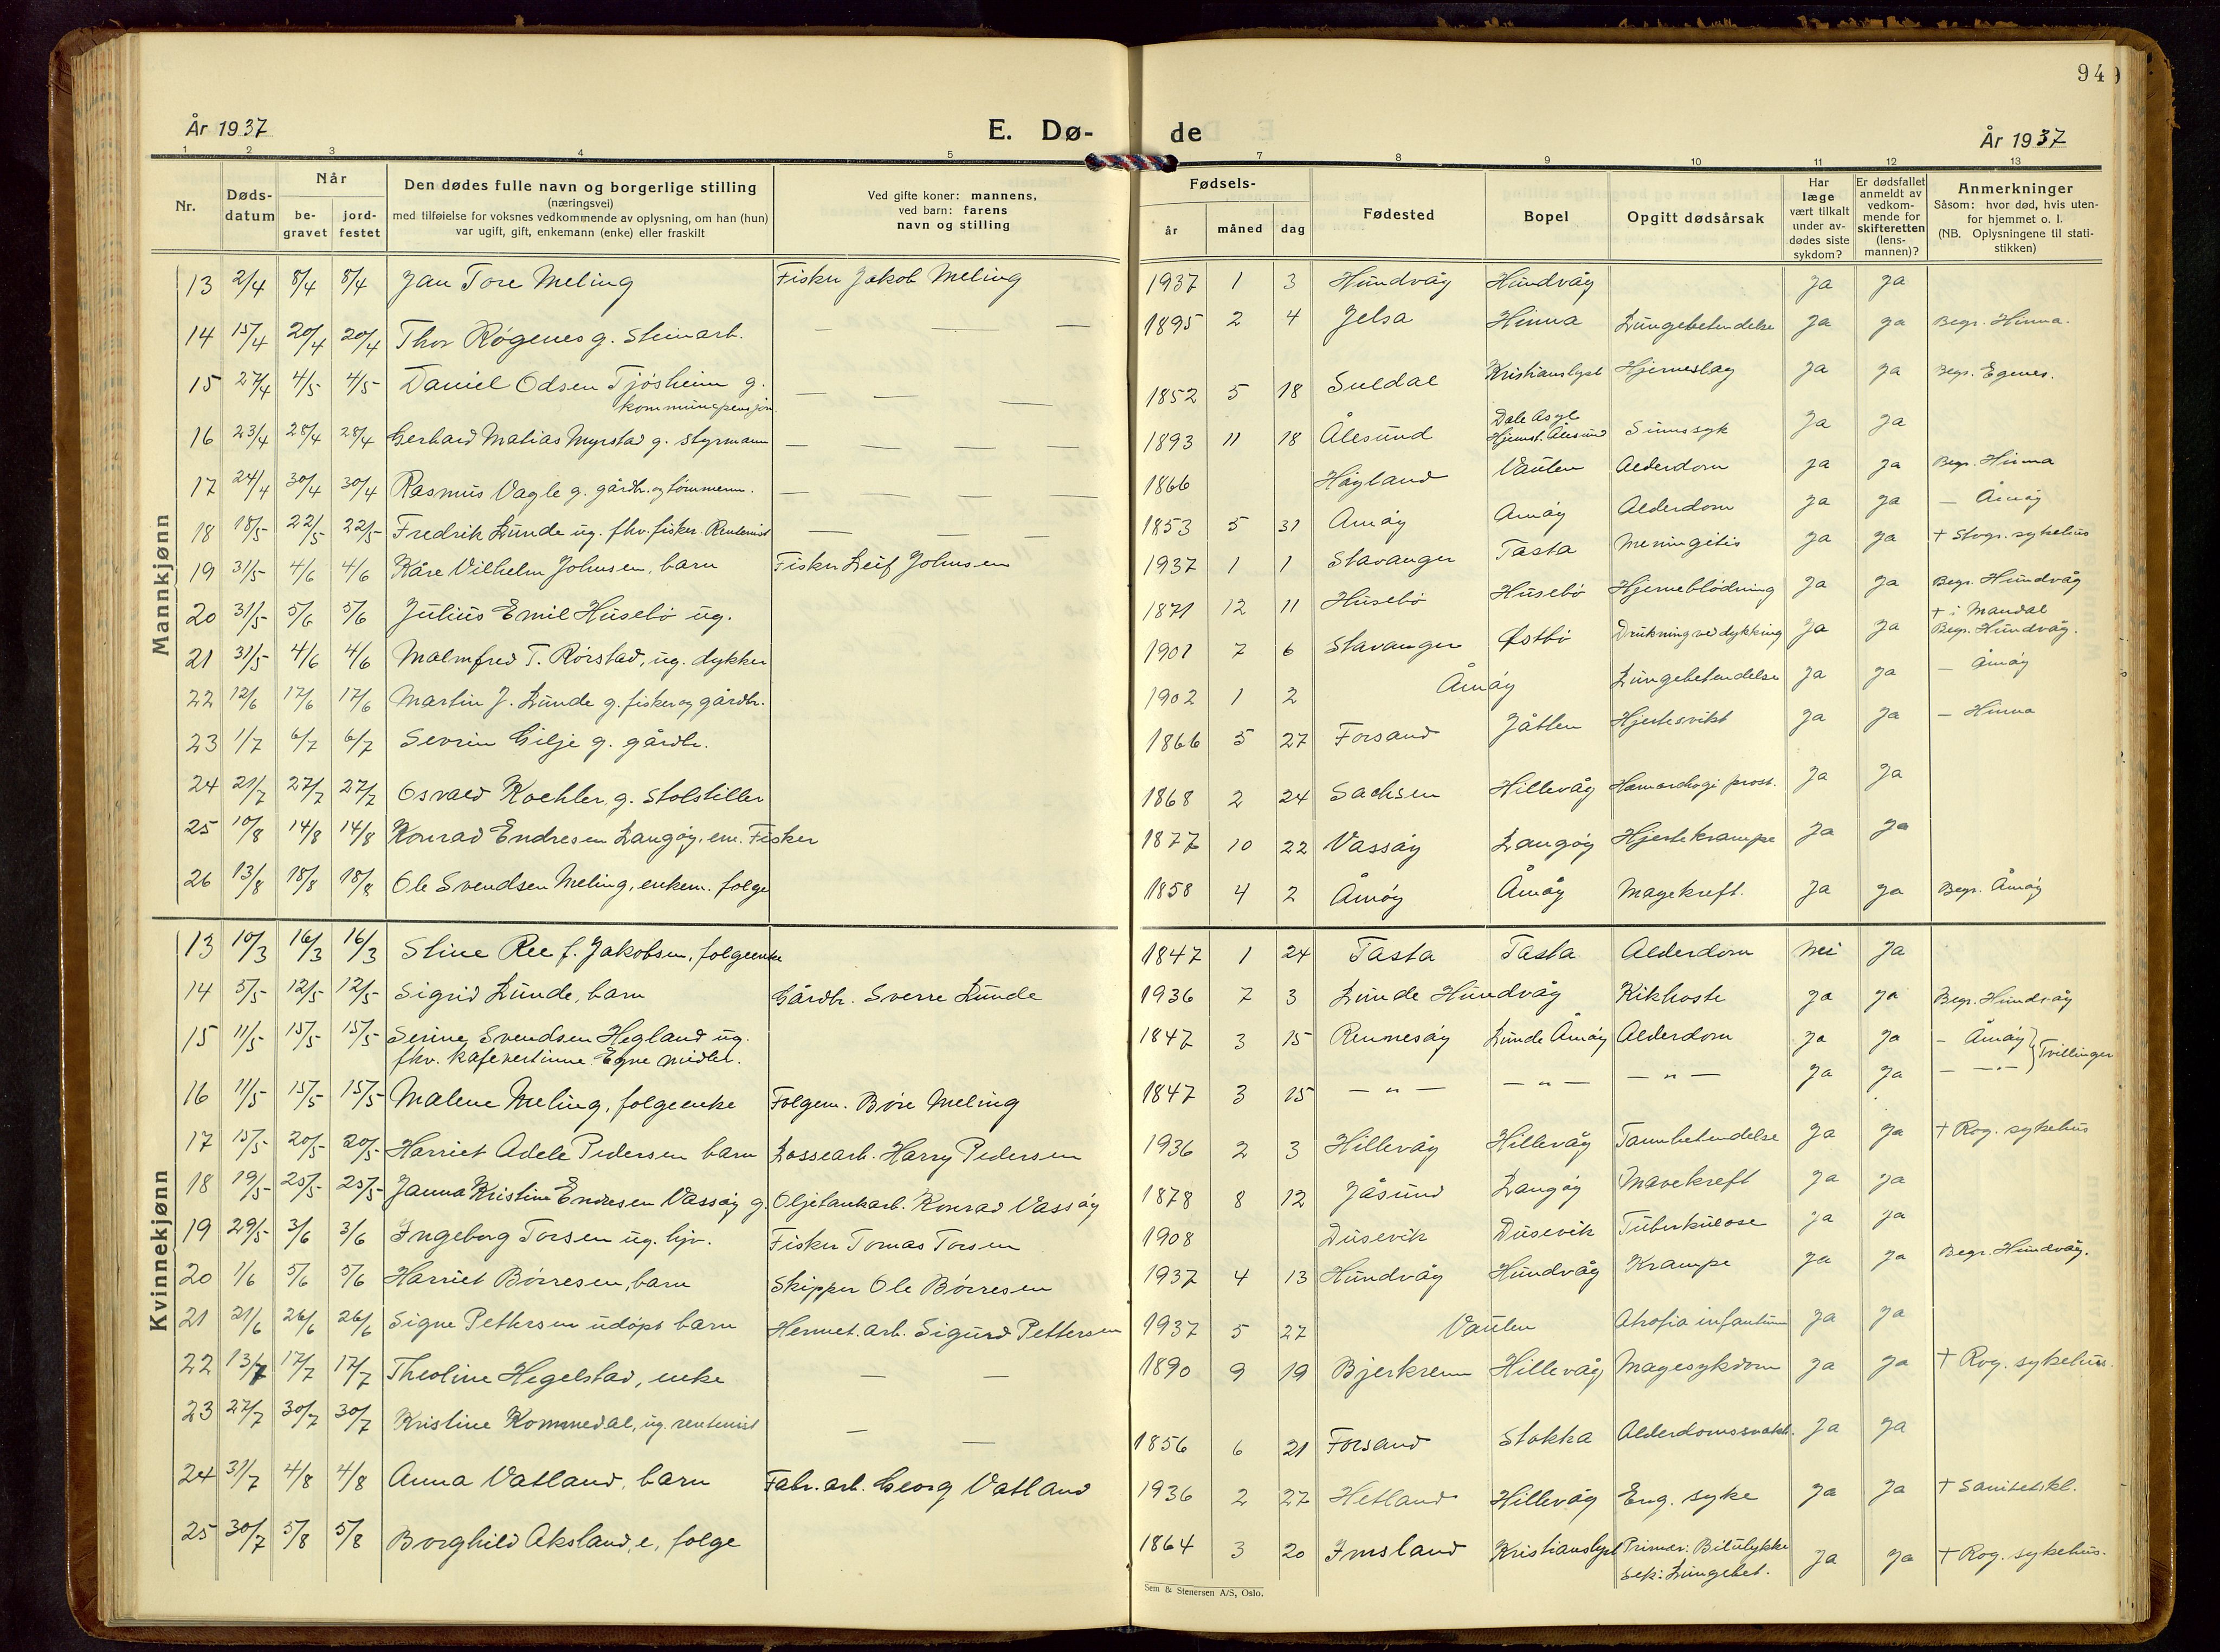 94
År 1937 E. Dø- de År 1937
1 2 3 4 5 7 8 9 10 11 12 13
Nr.
Døds-
datum
Når
be-
gravet
jord-
festet
Den dødes fulle navn og borgerlige stilling
(næringsvei)
med tilføielse for voksnes vedkommende av oplysning, om han (hun)
var ugift, gift, enkemann (enke) eller fraskilt
Ved gifte koner: mannens,
ved barn: farens
navn og stilling
Fødsels-
år måned dag
Fødested
Bopel
Opgitt dødsårsak
Har
læge
vært tilkalt
under av-
dødes siste
sykdom?
Er dødsfallet
anmeldt av
vedkom-
mende for
skifteretten
(lens-
mannen)?
Anmerkninger
Såsom: hvor død, hvis uten-
for hjemmet o. l.
(NB. Oplysningene til stati-
stikken)
Mannkjønn
13 2/4 8/4 8/4 Jan Tore Meling Fisker Jakob Meling 1937 1 3 Hundvåg Hundvåg Ja Ja
14 15/4 20/4 20/4 Thor Røgenes g. Steinarb. — — — 1895 2 4 Jelsa Hinna Lungebetendelse Ja Ja Begr. Hinna.
15 27/4 4/5 4/5 Daniel Odsen Tjøsheim g.
kommunepensjon. — — — 1852 5 18 Suldal Kristianslyst Hjerneslag Ja Ja Begr. Egenes.
16 23/4 28/4 28/4 Gerhard Matias Myrstad g. styrmann — — — 1893 11 18 Ålesund Dale Asyl
Hjemst. Ålesund Sinnssyk Ja Ja
17 24/4 30/4 30/4 Rasmus Vagle g. gårdbr. og tømmerm. — — — — 1866 Høyland Vaulen Alderdom Ja Ja Begr. Hinna
18 18/5 22/5 22/5 Fredrik Lunde ug. fhv. fisker. Rentenist — — — 1853 5 31 Åmøy Åmøy Alderdom Ja Ja — Åmøy
19 31/5 4/6 4/6 Kåre Vilhelm Johnsen, barn Fisker Leif Johnsen 1937 1 1 Stavanger Tasta Meningitis Ja Ja + Stvgr. sykehus
20 31/5 5/6 5/6 Julius Emil Husebø ug. 1871 12 11 Husebø Husebø Hjerneblødning Ja Ja Begr. Hundvåg
21 31/5 4/6 4/6 Malmfred T. Rørstad, ug. dykker 1901 7 6 Stavanger Østbø Drukning ved dykking Ja Ja + i Mandal
Begr. Hundvåg.
22 12/6 17/6 17/6 Martin J. Lunde g. fisker og gårdbr. 1902 1 2 Åmøy Lungebetendelse Ja Ja — Åmøy
23 1/7 6/7 6/7 Sevrin Gilje g. gårdbr. 1866 5 27 Forsand Jåtten Hjertesvikt Ja Ja — Hinna
24 21/7 27/7 27/7 Osvald Koehler g. Stolstiller 1868 2 24 Sachsen Hillevåg prost. Ja Ja
25 10/8 14/8 14/8 Konrad Endresen Langøy, em. Fisker 1877 10 22 Vassøy Langøy Hjertekrampe Ja Ja
26 13/8 18/8 18/8 Ole Svendsen Meling, enkem. folge 1858 4 2 Åmøy Åmøy Magekreft. Ja Ja Begr. Åmøy
Kvinnekjønn
13 10/3 16/3 16/3 Stine Ree f. Jakobsen, folgeenke 1847 1 24 Tasta Tasta Alderdom Nei Ja
14 5/5 12/5 12/5 Sigrid Lunde, barn Gårdbr. Sverre Lunde 1936 7 3 Lunde Hundvåg Kikhoste Ja Ja Begr. Hundvåg
15 11/5 15/5 15/5 Serine Svendsen Hegland ug.
fhv. kafevertinne. Egne midler. 1847 3 15 Rennesøy Lunde Åmøy Alderdom Ja Ja — Åmøy } Tvillinger
16 11/5 15/5 15/5 Malene Meling, folgeenke Folgem. Børe Meling 1847 3 15 — " — — " — — " — Ja Ja — — " —
17 15/5 20/5 20/5 Harriet Adele Pedersen barn Lossearb. Harry Pedersen 1936 2 3 Hillevåg Hillevåg Tarmbetendelse Ja Ja + Rog. sykehus
18 19/5 25/5 25/5 Janna Kristine Endresen Vassøy g. Oljetankarb. Konrad Vassøy 1878 8 12 Jåsund Langøy Mavekreft Ja Ja
19 29/5 3/6 3/6 Ingeborg Torsen ug. hjv. Fisker Tomas Torsen 1908 Dusevik Dusevik Tuberkulose Ja Ja
20 1/6 5/6 5/6 Harriet Børresen, barn Skipper Ole Børresen 1937 4 13 Hundvåg Hundvåg Krampe Ja Ja Begr. Hundvåg.
21 21/6 26/6 26/6 Signe Pettersen udøpt barn Hermet. arb. Sigurd Pettersen 1937 5 27 Vaulen Atrofia infantum Ja Ja
22 13/7 17/7 17/7 Theoline Hegelstad, enke — — 1890 9 19 Bjerkreim Hillevåg Magesykdom Ja Ja + Rog. sykehus.
23 27/7 30/7 30/7 Kristine Kommedal, ug. rentenist — — 1856 6 21 Forsand Stokka Alderdomssvakh. Ja Ja
24 31/7 4/8 4/8 Anna Vatland, barn Fabr. arb. Georg Vatland 1936 2 27 Hetland Hillevåg Eng. syke Ja Ja + Sanitetskl.
25 30/7 5/8 5/8 Borghild Aksland, e, folge 1864 3 20 Imsland Kristianslyst Primær: Bilulykke
sek: Lungebet. Ja Ja + Rog. sykehus.
Sem & Stenersen A/S, Oslo.